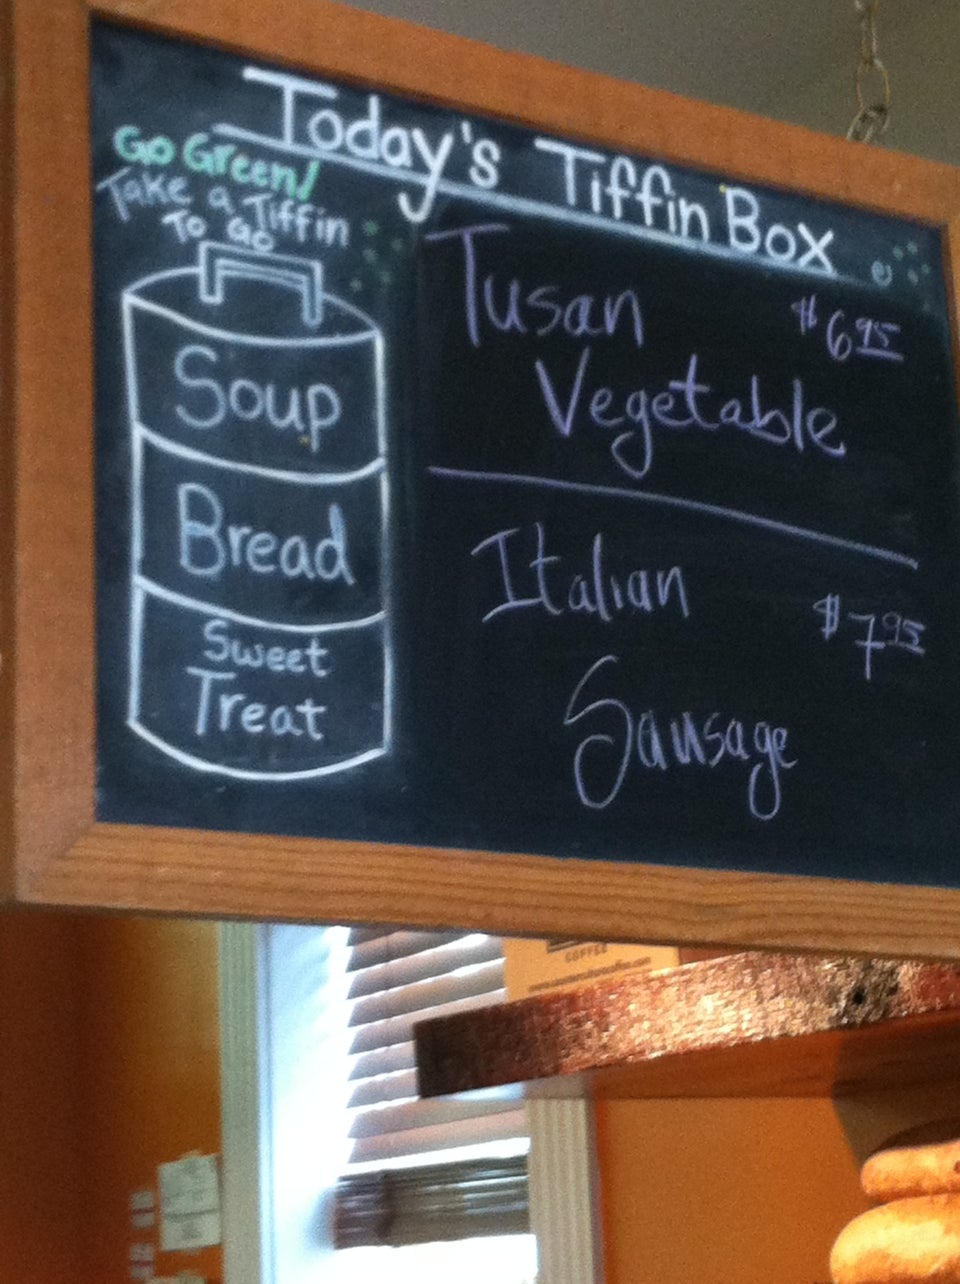 Today's Tiffin Box
Go Green!
Take a Tiffin
To Go
Soup
Bread
Sweet
Treat
Tusan
$6.95
Vegetable
Italian
$7.95
Sausage
COFFEE